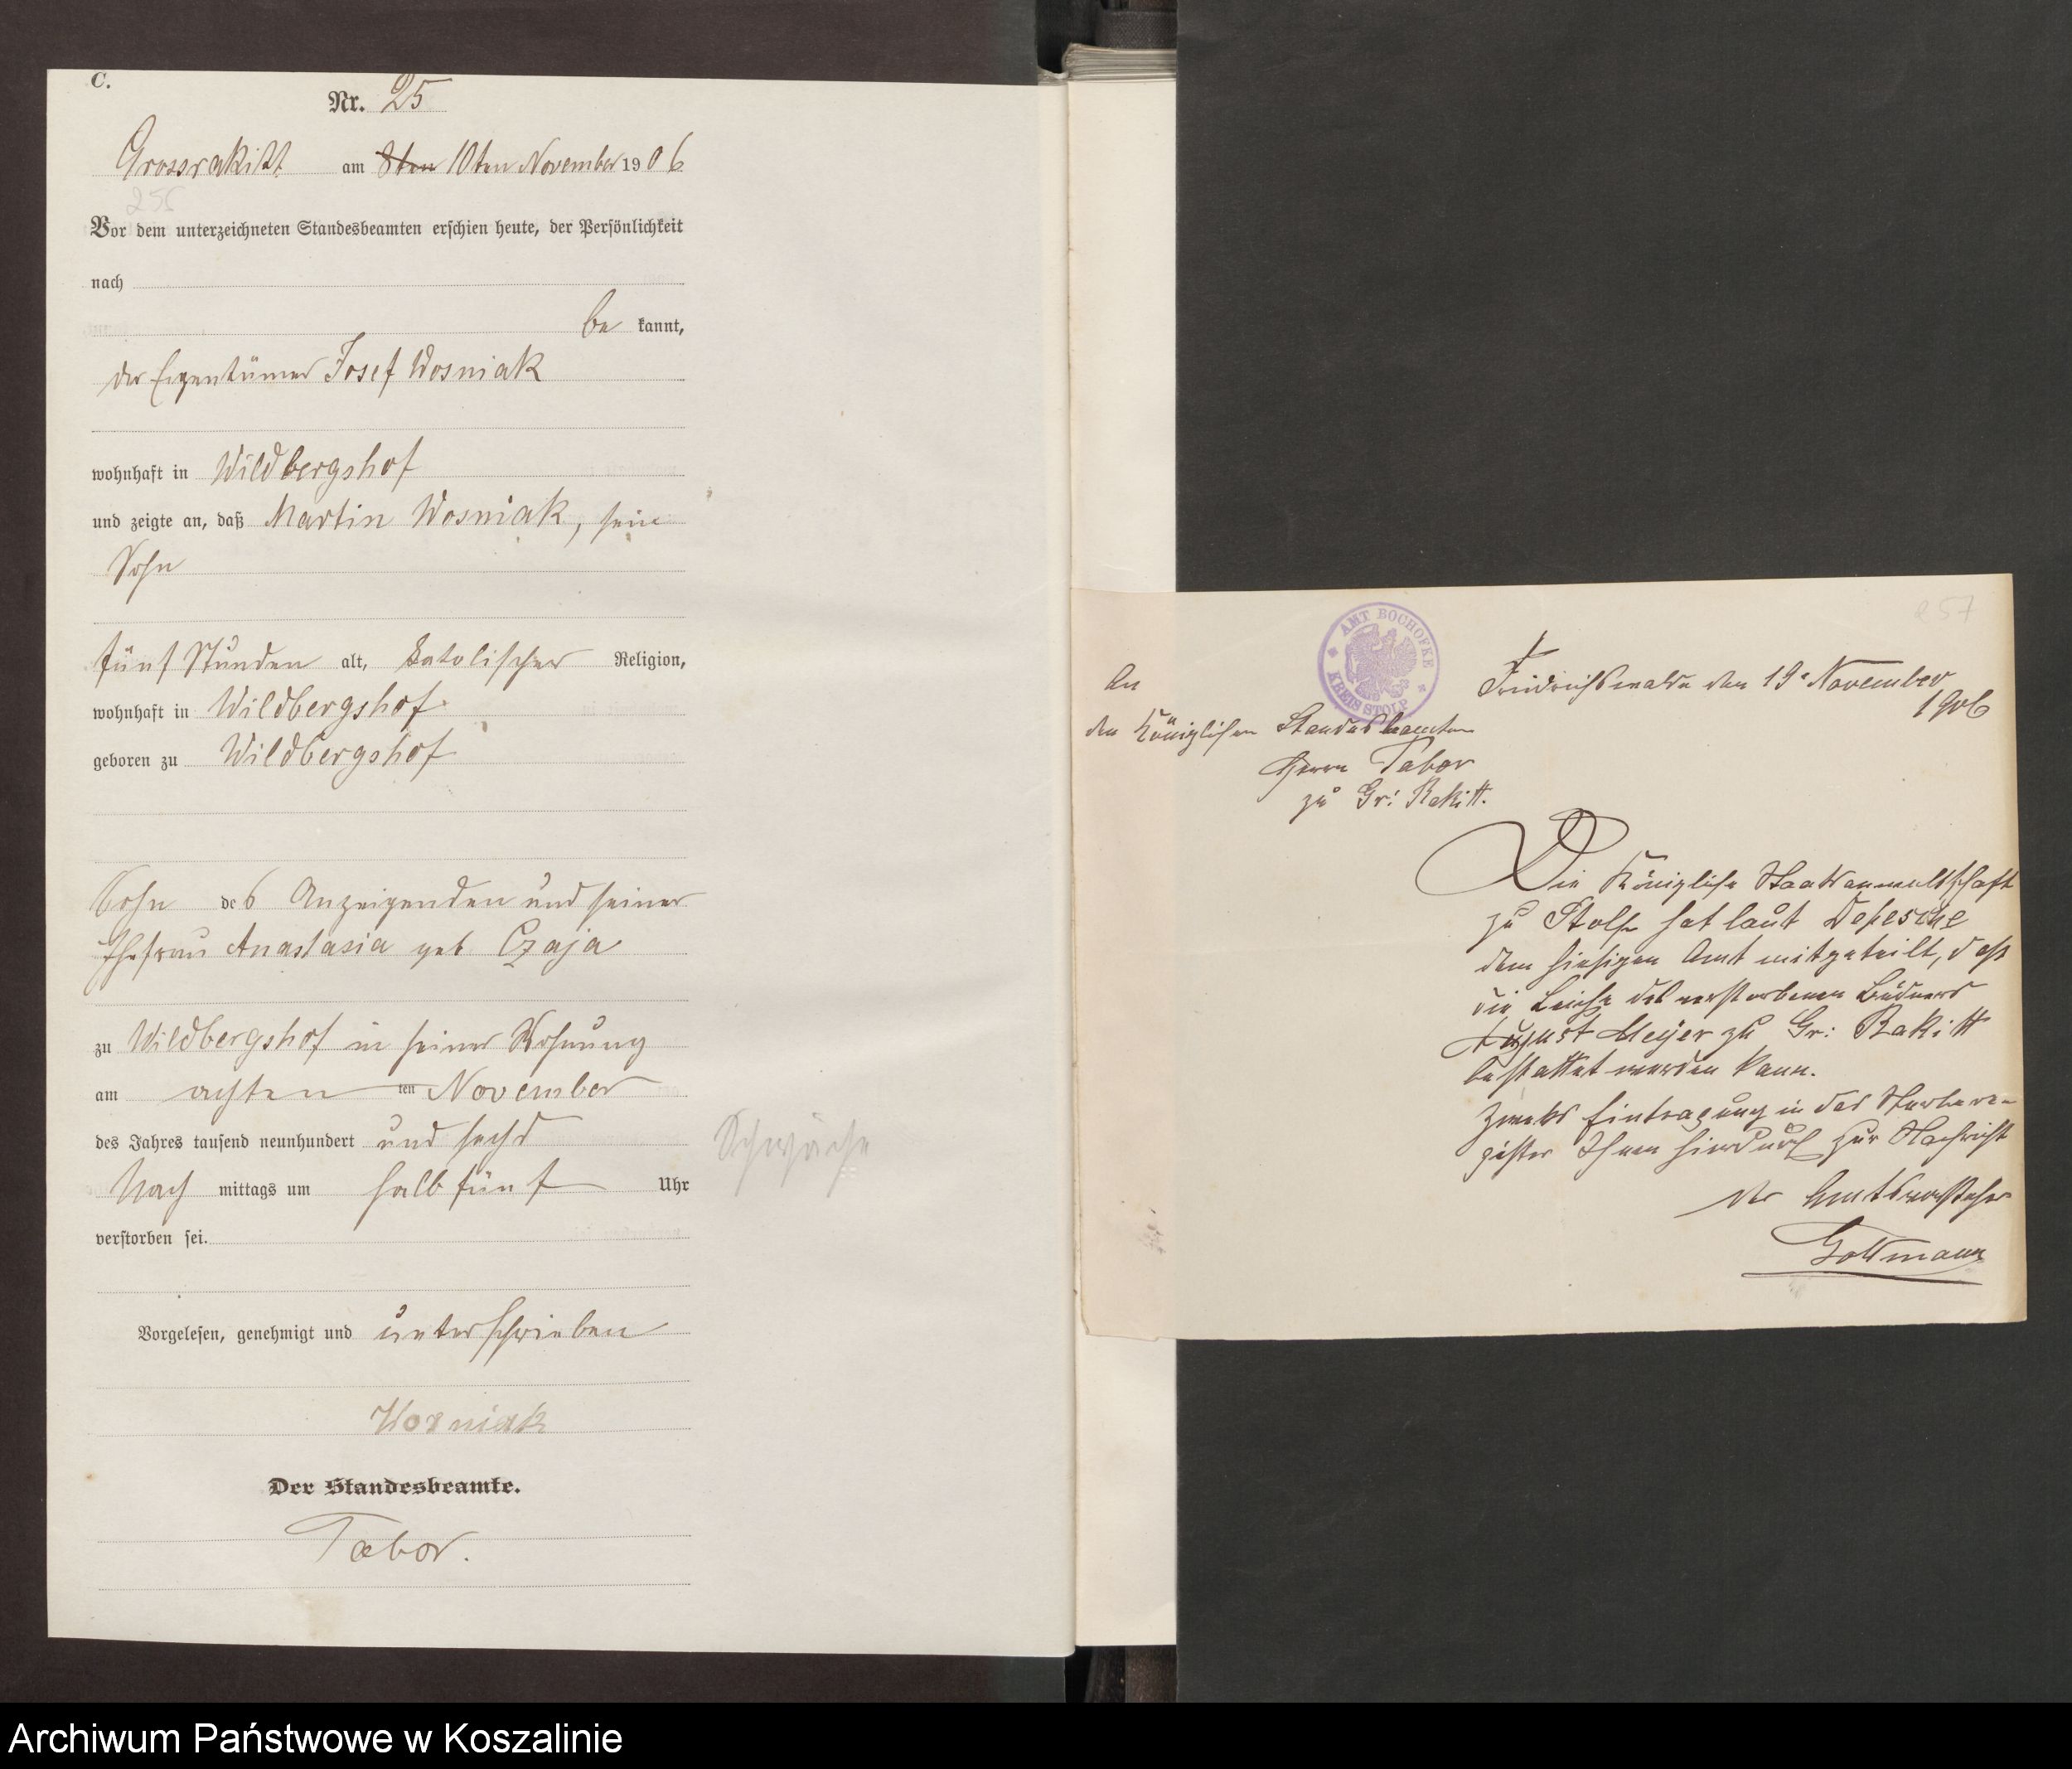 C.
Nr. 25
Grossrakitt am 8ten 10ten November 1906
255
Vor dem unterzeichneten Standesbeamten erschien heute, der Persönlichkeit
nach
be kannt,
der Eigentümer Josef Wosniak
wohnhaft in Wildbergshof
und zeigte an, daß Martin Wosniak, sein
Sohn
fünf Stunden alt, katolischer Religion,
wohnhaft in Wildbergshof
geboren zu Wildbergshof
Sohn des Anzeigenden und seiner
Ehefrau Anastasia geb Czaja
zu Wildbergshof in seiner Wohnung
am achten ten November
des Jahres tausend neunhundert und sechs
Nach mittags um halb fünf Uhr
verstorben sei.
Schwäche
Vorgelesen, genehmigt und unterschrieben
Wosniak
Der Standesbeamte.
Tabor.
257
AMT BOCHOFKE
KREIS STOLP
Friedrichswalde den 19. November
1906
An
den Königlichen Standesbeamten
Herrn Tabor
zu Gr: Rakitt.
Die Königliche Staatsanwaltschaft
zu Stolp hat laut Depesche
dem hiesigen Amt mitgeteilt, daß
die Leiche des verstorbenen Büdners
August Meyer zu Gr: Rakitt
bestattet werden kann.
Zwecks Eintragung in das Sterbere-
gister Ihnen hierdurch zur Nachricht
Der Amtsvorsteher
Archiwum Państwowe w Koszalinie